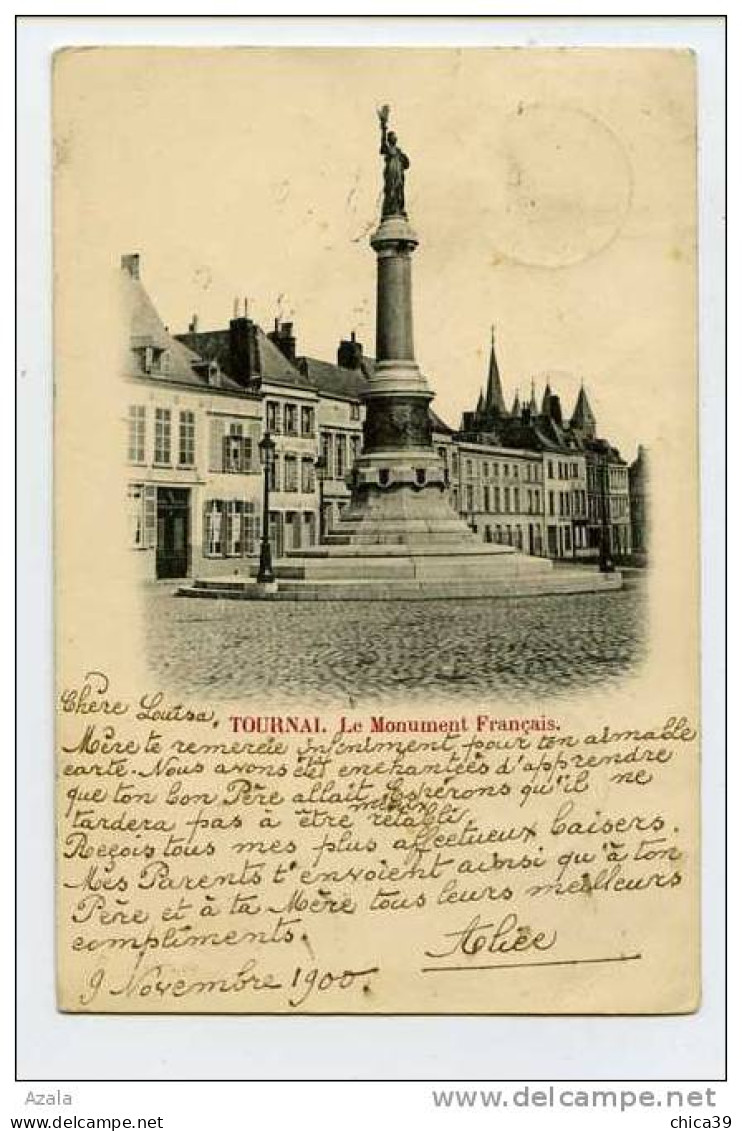 Chère Louisa,
TOURNAI. Le Monument Français.
Mère te remercie infiniment pour ton aimable
carte. Nous avons été enchantées d'apprendre
que ton bon Père allait mieux. Espérons qu'il ne
tardera pas à être rétabli.
Reçois tous mes plus affectueux baisers.
Mes Parents t'envoient ainsi qu'à ton
Père et à ta Mère tous leurs meilleurs
compliments.
Alice
9 Novembre 1900.
Azala
www.delcampe.net
Website chica39